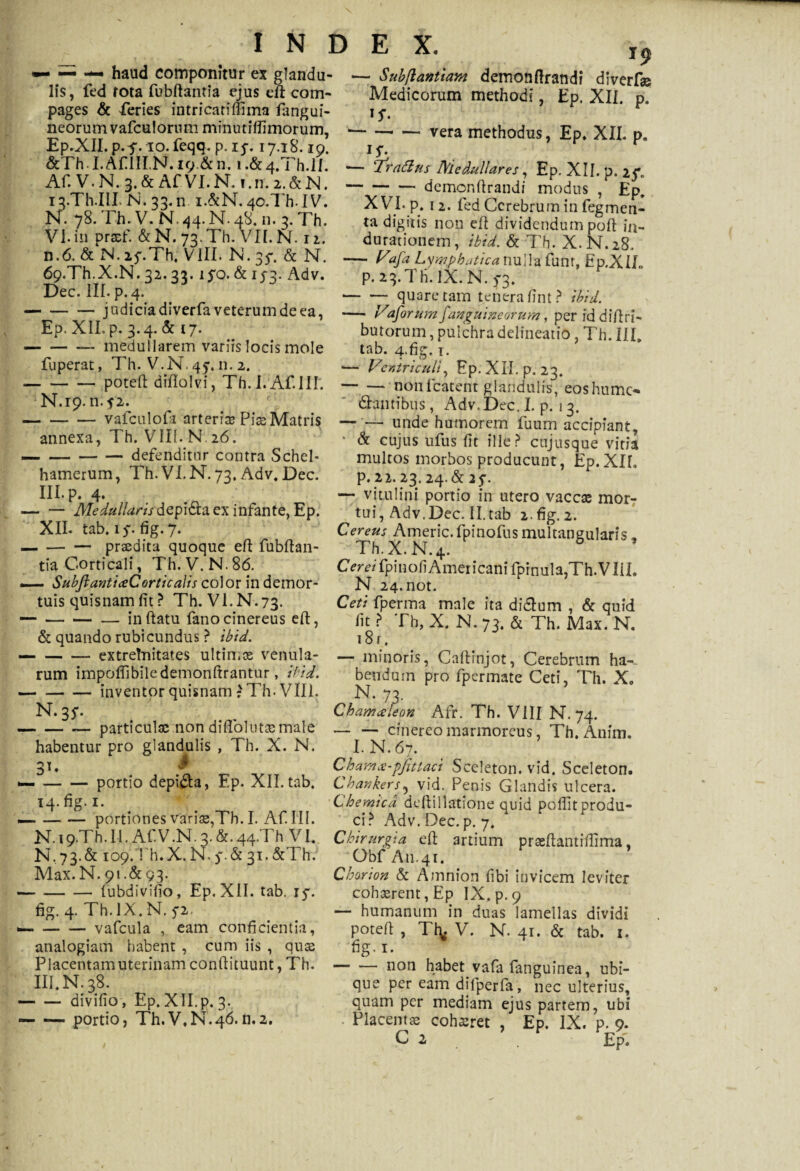 INDEX.
19
— — — haud componitur ex glandu-
lis, ſed tota ſubſtantia ejus eſt com-
pages & ſeries intricatiſſima ſangui-
neorum vaſculorum minutiſſimorum,
Ep.XII. p. 5. 10. ſeqq. p. 15. 17.18. 19.
&Th.I.Aſ.III.N.19.&n. 1.&4.Th.II.
Aſ. V. N. 3. & Aſ VI. N. 1. n. 2. & N.
13.Th.III. N. 33. n 1.&N. 40.Th.IV.
N. 78. Th. V. N. 44. N. 48. n. 3. Th.
VI. in præf. & N. 73. Th. VII. N. 12.
n.6. & N. 25. Th. VIII. N. 35. & N.
69.Th.X.N. 32. 33. 150. & 153. Adv.
Dec. III. p. 4.
— — — judicia diverſa veterum de ea,
Ep. XII. p. 3. 4. & 17.
— — — medullarem variis locis mole
ſuperat, Th. V. N. 45. n. 2.
— — — poteſt diſſolvi, Th. I. Aſ. III.
N. 19. n. 52.
— — — vaſculoſa arteriæ Piæ Matris
annexa, Th. VIII. N. 26.
— — — — defenditur contra Schel-
hamerum, Th. VI. N. 73. Adv. Dec.
III. p. 4.
— — Medullaris depicta ex infante, Ep.
XII. tab. 15. fig. 7.
— — — prædita quoque eſt ſubſtan-
tia Corticali, Th. V. N. 86.
— Subſtantiæ Corticalis color in demor-
tuis quisnam ſit? Th. VI. N. 73.
— — — — in ſtatu ſano cinereus eſt,
& quando rubicundus? ibid.
— — — extremitates ultimæ venula-
rum impoſſibile demonſtrantur, ibid.
— — — inventor quisnam? Th. VIII.
N. 35.
— — — particulæ non diſſolutæ male
habentur pro glandulis, Th. X. N.
31.
— — — portio depicta, Ep. XII. tab.
14. fig. 1.
— — — portiones variæ, Th. I. Aſ. III.
N. 19. Th. II. Aſ. V. N. 3. &. 44. Th VI.
N. 73. & 109. Th. X. N. 5. & 31. & Th.
Max. N. 91. & 93.
— — — ſubdiviſio, Ep. XII. tab. 15.
fig. 4. Th. IX. N. 52.
— — — vaſcula, eam conficientia,
analogiam habent, cum iis, quæ
Placentam uterinam conſtituunt, Th.
III. N. 38.
— — diviſio, Ep. XII. p. 3.
— — portio, Th. V. N. 46. n. 2.
— Subſtantiam demonſtrandi diverſæ
Medicorum methodi, Ep. XII. p.
15.
— — — vera methodus, Ep. XII. p.
15.
— Tractus Medullares, Ep. XII. p. 25.
— — — demonſtrandi modus, Ep.
XVI. p. 12. ſed Cerebrum in ſegmen-
ta digitis non eſt dividendum poſt in-
durationem, ibid. & Th. X. N. 28.
— Vaſa Lymphatica nulla ſunt, Ep. XII.
p. 23. Th. IX. N. 53.
— — quare tam tenera ſint? ibid.
— Vaſorum ſanguineorum, per id diſtri-
butorum, pulchra delineatio, Th. III.
tab. 4. fig. 1.
— Ventriculi, Ep. XII. p. 23.
— — non ſcatent glandulis, eos hume-
ctantibus, Adv. Dec. I. p. 13.
— — unde humorem ſuum accipiant,
& cujus uſus ſit ille? cujusque vitia
multos morbos producunt, Ep. XII.
p. 22. 23. 24. & 25.
— vitulini portio in utero vaccæ mor-
tui, Adv. Dec. II. tab 2. fig. 2.
Cereus Americ. ſpinoſus multangularis,
Th. X. N. 4.
Cerei ſpinoſi Americani ſpinula, Th. VIII.
N. 24. not.
Ceti ſperma male ita dictum, & quid
ſit? Th, X. N. 73. & Th. Max. N.
181.
— minoris, Caſtinjot, Cerebrum ha-
bendum pro ſpermate Ceti, Th. X.
N. 73.
Chamæleon Afr. Th. VIII N. 74.
— — cinereo marmoreus, Th. Anim.
I. N. 67.
Chamæ-pſittaci Sceleton. vid. Sceleton.
Chankers, vid. Penis Glandis ulcera.
Chemica deſtillatione quid poſſit produ-
ci? Adv. Dec. p. 7.
Chirurgia eſt artium præſtantiſſima,
Obſ An. 41.
Chorion & Amnion ſibi invicem leviter
cohærent, Ep IX. p. 9
— humanum in duas lamellas dividi
poteſt, Th. V. N. 41. & tab. 1.
fig. 1.
— — non habet vaſa ſanguinea, ubi-
que per eam diſperſa, nec ulterius,
quam per mediam ejus partem, ubi
Placentæ cohæret, Ep. IX. p. 9.
C 2
Ep.